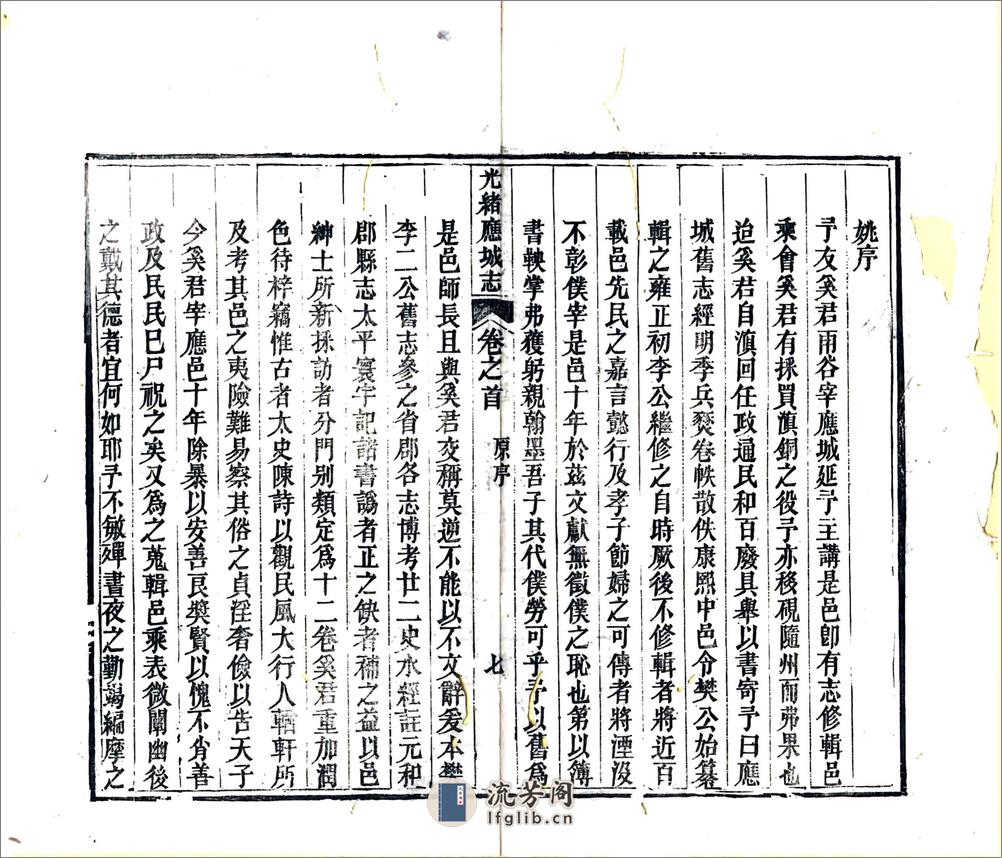 姚序
予友奚君雨谷宰應城延予主講是邑卽有志修輯邑
乘會奚君有採買滇銅之役予亦移硯隨州而弗果也
迨奚君自滇回任政通民和百廢具舉以書寄予曰應
城舊志經明季兵燹卷帙散佚康熙中邑令樊公始纂
輯之雍正初李公繼修之自時厥後不修輯者將近百
載邑先民之嘉言懿行及孝子節婦之可傳者將湮沒
不彰僕宰是邑十年於茲文獻無徵僕之恥也第以簿
書鞅掌弗獲躬親翰墨吾子其代僕勞可乎予以舊為
光緒應城志 卷之首 原序 七
是邑師長且與奚君交稱莫逆不能以不文辭爰本樊
李二公舊志參之省郡各志博考廿二史水經註元和
郡縣志太平寰宇記諸書譌者正之缺者補之益以邑
紳士所新採訪者分門别類定為十二卷奚君重加潤
色待梓竊惟古者太史陳詩以觀民風大行人輶軒所
及考其邑之夷險難易察其俗之貞淫奢儉以告天子
今奚君宰應邑十年除暴以安善良奬賢以愧不肖善
政及民民已尸祝之矣又為之蒐輯邑乘表微闡幽後
之戴其德者宜何如耶予不敏殫晝夜之勤謁編摩之
流芳阁
lfglib.cn